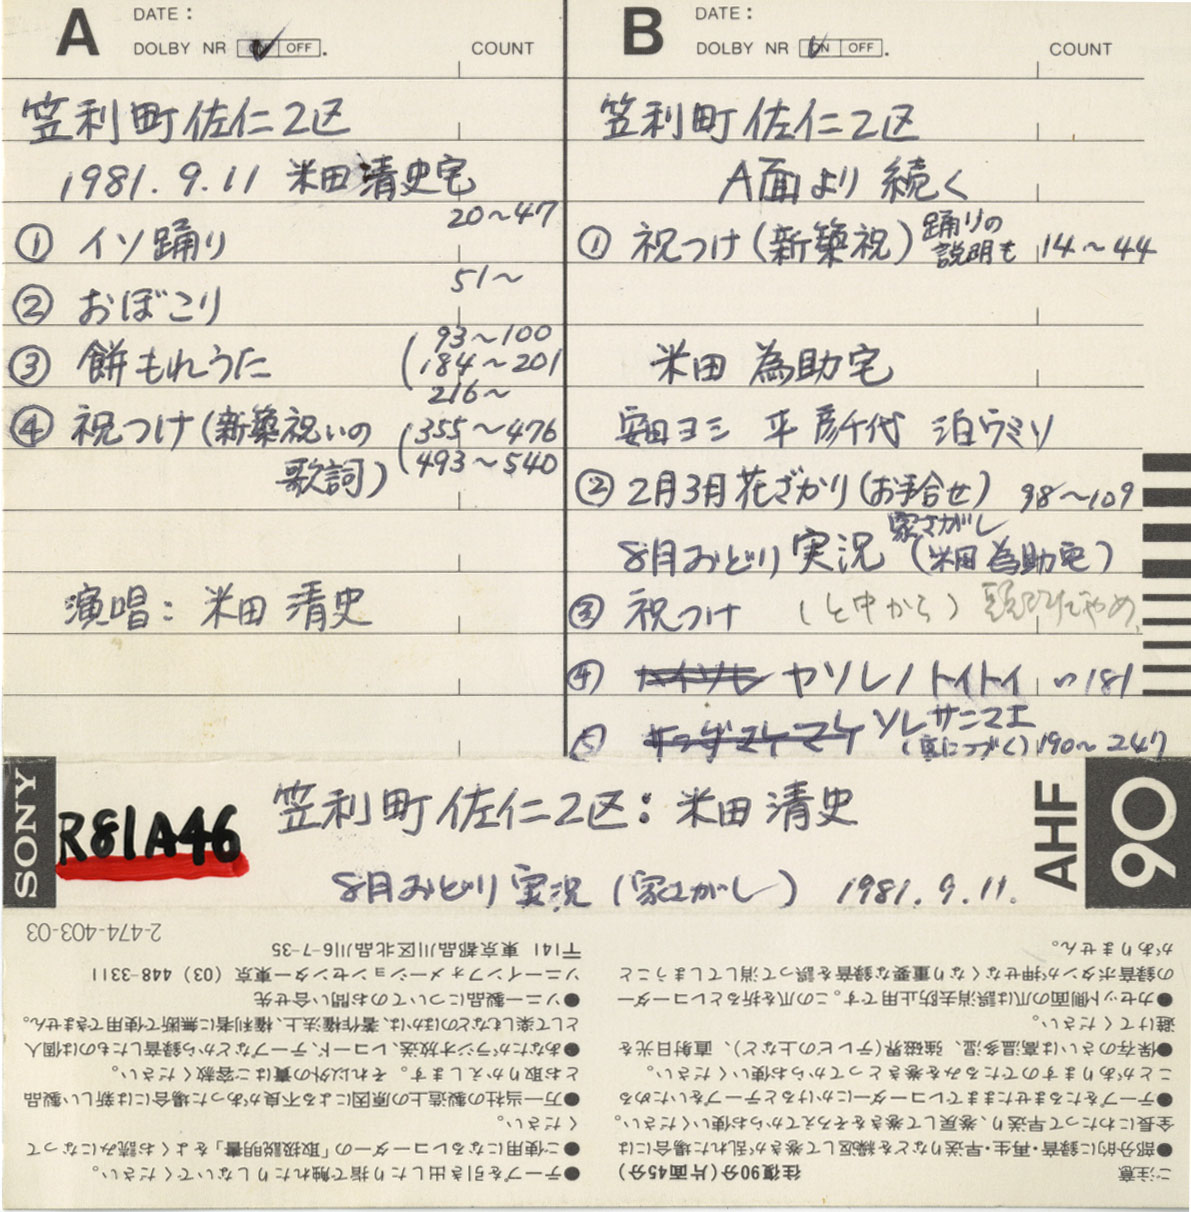 A DATE:
DOLBY NR ON OFF. COUNT
笠利町佐仁2区
1981.9.11 米田清史宅
20〜47
① イソ踊り
51〜
② おぼこり
93〜100
③ 餅もれうた (184〜201
216〜
④ 祝つけ(新築祝いの (355〜476
歌詞) (493〜540
演唱: 米田 清史
B DATE:
DOLBY NR ON OFF. COUNT
笠利町佐仁2区
A面より 続く
① 祝つけ(新築祝) 踊りの説明も 14〜44
米田 為助宅
安田ヨシ 平彦千代 泊ウミソ
② 2月3月花ざかり(お手合せ) 98〜109
8月おどり 実況 家さがし (米田為助宅)
③ 祝つけ (と中から)
④ ヤソレノトイトイ 〃181
⑤ ソレサニマエ
(裏につづく) 190〜247
SONY
R81A46
笠利町佐仁2区: 米田清史
8月おどり実況 (家さがし) 1981.9.11.
AHF
90
ご注意 往復90分(片面45分)
●部分的に録音・再生・早送りなどを繰返して巻きが乱れた場合には
全長にわたって早送り、巻戻して巻きをそろえてからお使いください。
●テープをたるませたままでレコーダーにかけるとテープをいためる
ことがありますのでたるみを巻きとってからお使いください。
●保存のさいは高温多湿、強磁界(テレビの上など)、直射日光を
避けてください。
●カセット側面の爪は誤消去防止用です。この爪を折るとレコーダー
の録音ボタンが押せなくなり重要な録音を誤って消してしまうこと
がありません。
●テープを引き出したり指で触れたりしないでください。
●ご使用になるレコーダーの「取扱説明書」をよくお読みになって
ください。
●万一当社の製造上の原因による不良があった場合には新しい製品
とお取りかえします。それ以外の責はご容赦ください。
●あなたがラジオ放送、レコード、テープなどから録音したものは個人
として楽しむなどのほかは、著作権法上、権利者に無断で使用できません。
●ソニー製品についてのお問い合せ先
ソニーインフォメーションセンター東京 (03) 448-3311
〒141 東京都品川区北品川6-7-35
2-474-403-03